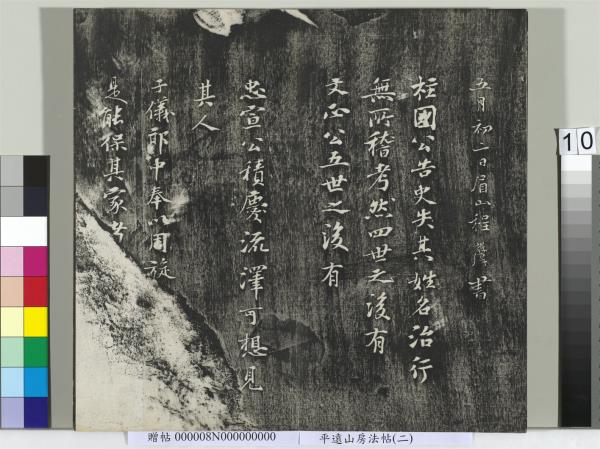 五月初一日眉山程□書
柱國公告史失其姓名治行
無所稽考然四世之後有
文正公五世之後有
忠宣公積慶流澤可想見
其人
子儀郎中奉以周旋
是能保其家者
10
贈帖 000008N000000000 平遠山房法帖(二)